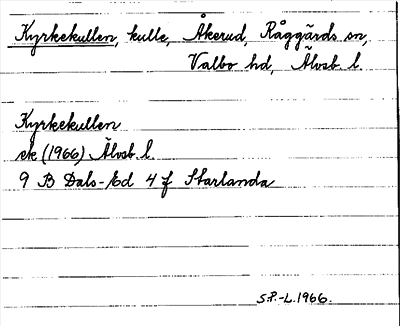 Kyrkekullen, kulle, Åkerud, Råggärds sn,
Valbo hd, Älvsb l.
Kyrkekullen
ek (1966) Älvsb l.
9 B Dals-Ed 4 f Starlanda
S.P.-L. 1966.